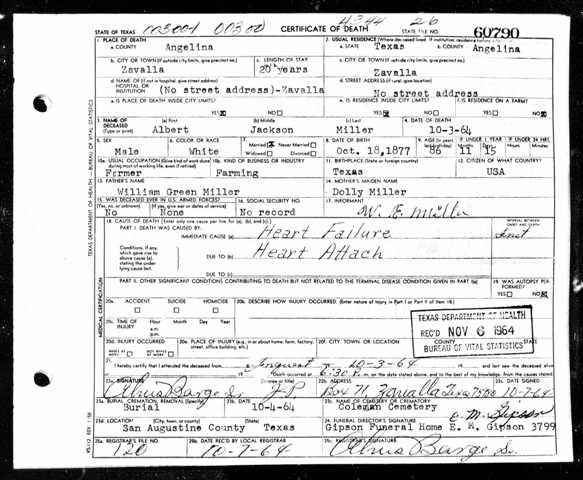 003001 00300 4344 26
STATE OF TEXAS CERTIFICATE OF DEATH STATE FILE NO. 60790
1. PLACE OF DEATH 2. USUAL RESIDENCE (Where deceased lived. If institution: residence before admission)
a. COUNTY Angelina a. STATE Texas b. COUNTY Angelina
b. CITY OR TOWN (If outside city limits, give precinct no.) c. LENGTH OF STAY c. CITY OR TOWN (If outside city limits, give precinct no.)
Zavalla 20 years Zavalla
d. NAME OF (If not in hospital, give street address) d. STREET ADDRESS (If rural, give location)
HOSPITAL OR INSTITUTION (No street address)-Zavalla No street address
e. IS PLACE OF DEATH INSIDE CITY LIMITS? e. IS RESIDENCE INSIDE CITY LIMITS? f. IS RESIDENCE ON A FARM?
YES NO YES NO YES NO
3. NAME OF DECEASED (Type or print) (a) First (b) Middle (c) Last 4. DATE OF DEATH
Albert Jackson Miller 10-3-64
5. SEX 6. COLOR OR RACE 7. Married Never Married Widowed Divorced 8. DATE OF BIRTH 9. AGE IF UNDER 1 YEAR IF UNDER 24 HRS.
Male White Oct. 18,1877 86 11 15
10a. USUAL OCCUPATION (Give kind of work done during most of working life, even if retired) 10b. KIND OF BUSINESS OR INDUSTRY 11. BIRTHPLACE (State or foreign country) 12. CITIZEN OF WHAT COUNTRY?
Farmer Farming Texas USA
13. FATHER'S NAME 14. MOTHER'S MAIDEN NAME
William Green Miller Dolly Miller
15. WAS DECEASED EVER IN U.S. ARMED FORCES? 16. SOCIAL SECURITY NO. 17. INFORMANT
(Yes, no, or unknown) (If yes, give war or dates of service)
No None No record W. E. Miller
18. CAUSE OF DEATH [Enter only one cause per line for (a), (b), and (c).] INTERVAL BETWEEN ONSET AND DEATH
PART I. DEATH WAS CAUSED BY:
IMMEDIATE CAUSE (a) Heart Failure Inst
Conditions, if any, which gave rise to above cause (a), stating the underlying cause last.
DUE TO (b) Heart Attach
DUE TO (c)
PART II. OTHER SIGNIFICANT CONDITIONS CONTRIBUTING TO DEATH BUT NOT RELATED TO THE TERMINAL DISEASE CONDITION GIVEN IN PART I(a) 19. WAS AUTOPSY PERFORMED?
YES NO
20a. ACCIDENT SUICIDE HOMICIDE 20b. DESCRIBE HOW INJURY OCCURRED. (Enter nature of injury in Part I or Part II of item 18.)
20c. TIME OF INJURY Hour Month Day Year
a.m.
p.m.
TEXAS DEPARTMENT OF HEALTH
REC'D NOV 6 1964
BUREAU OF VITAL STATISTICS
20d. INJURY OCCURRED 20e. PLACE OF INJURY (e.g., in or about home, farm, factory, street, office building, etc.) 20f. CITY, TOWN, OR LOCATION COUNTY STATE
WHILE AT WORK NOT WHILE AT WORK
21. I hereby certify that I attended the deceased Inquest 10-3-64
Death occurred at 6:30 P.m. on the date stated above, and to the best of my knowledge, from the causes stated.
22a. SIGNATURE (Degree or title) 22b. ADDRESS
Alma Barge Sr. J.P. Box N Zavalla Texas 75980 10-7-64
23a. BURIAL, CREMATION, REMOVAL (Specify) 23b. DATE 23c. NAME OF CEMETERY OR CREMATORY
Burial 10-4-64 Coleman Cemetery
23d. LOCATION (City, town, or county) (State) 24. FUNERAL DIRECTOR'S SIGNATURE E. M. Gipson
San Augustine County Texas Gipson Funeral Home E. M. Gipson 3799
25a. REGISTRAR'S NO. 25b. DATE REC'D BY LOCAL REGISTRAR 25c. REGISTRAR'S SIGNATURE
120 10-7-64 Alma Barge Sr.
TEXAS DEPARTMENT OF HEALTH — BUREAU OF VITAL STATISTICS
MEDICAL CERTIFICATION
VS-112 REV. 1-58